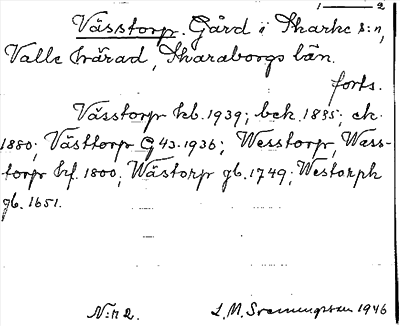 1 — 2
Vässtorp. Gård i Skarke s:n,
Valle härad, Skaraborgs län.
forts.
Vässtorp kb. 1939; bek. 1835; ek.
1880; Västtorp G 43. 1936; Wesstorp, Wass-
torp hf. 1800; Wästorp gb. 1749; Westorph
gb. 1651.
N:r 2. L. M. Svenungsson 1946